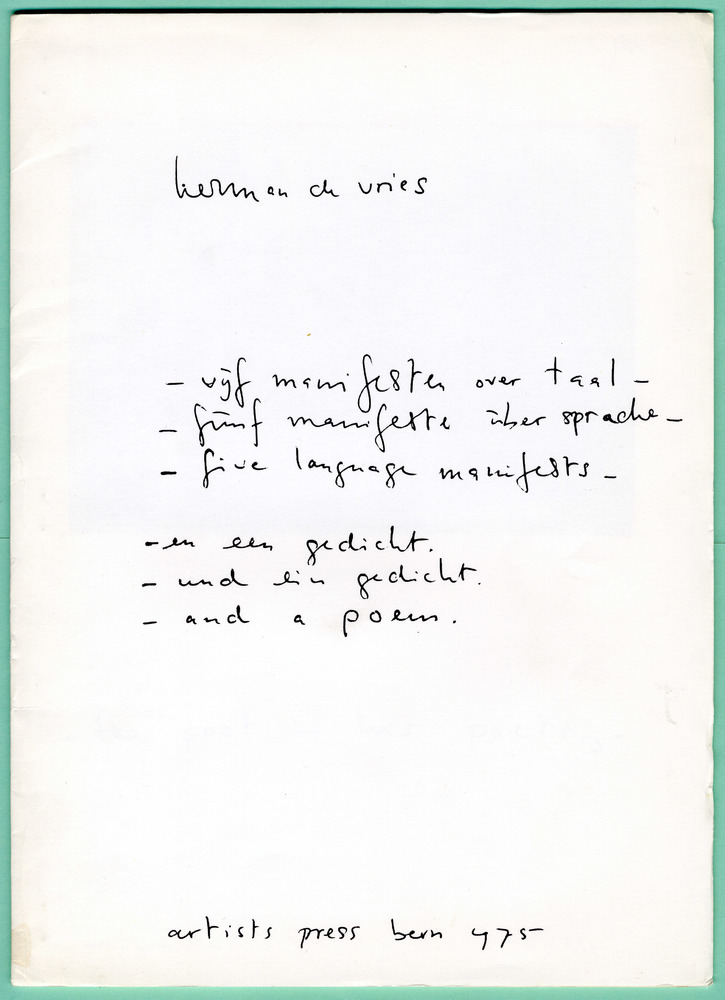 herman de vries
- vijf manifesten over taal -
- fünf manifeste über sprache -
- five language manifests -
- en een gedicht.
- und ein gedicht.
- and a poem.
artists press bern 475